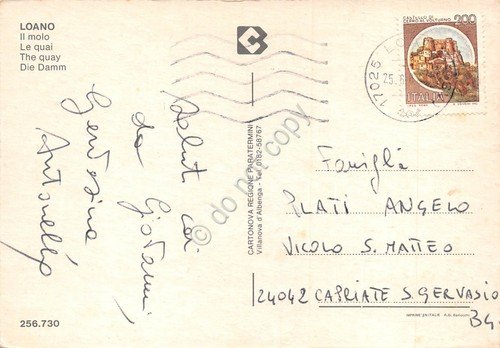 LOANO
Il molo
Le quai
The quay
Die Damm
Saluti
da
Giovanni,
Gersosina
Antonello
256.730
CARTONOVA REGIONE PARATERMINI
Villanova d'Albenga - Tel. 0182-58767
do not copy
CASTELLO DI
CERRO AL VOLTURNO
200
ITALIA
17025 LO
25.6
Famiglia
PLATI ANGELO
VICOLO S. MATTEO
24042 CAPRIATE S. GERVASIO
BG.
PRINTED IN ITALY